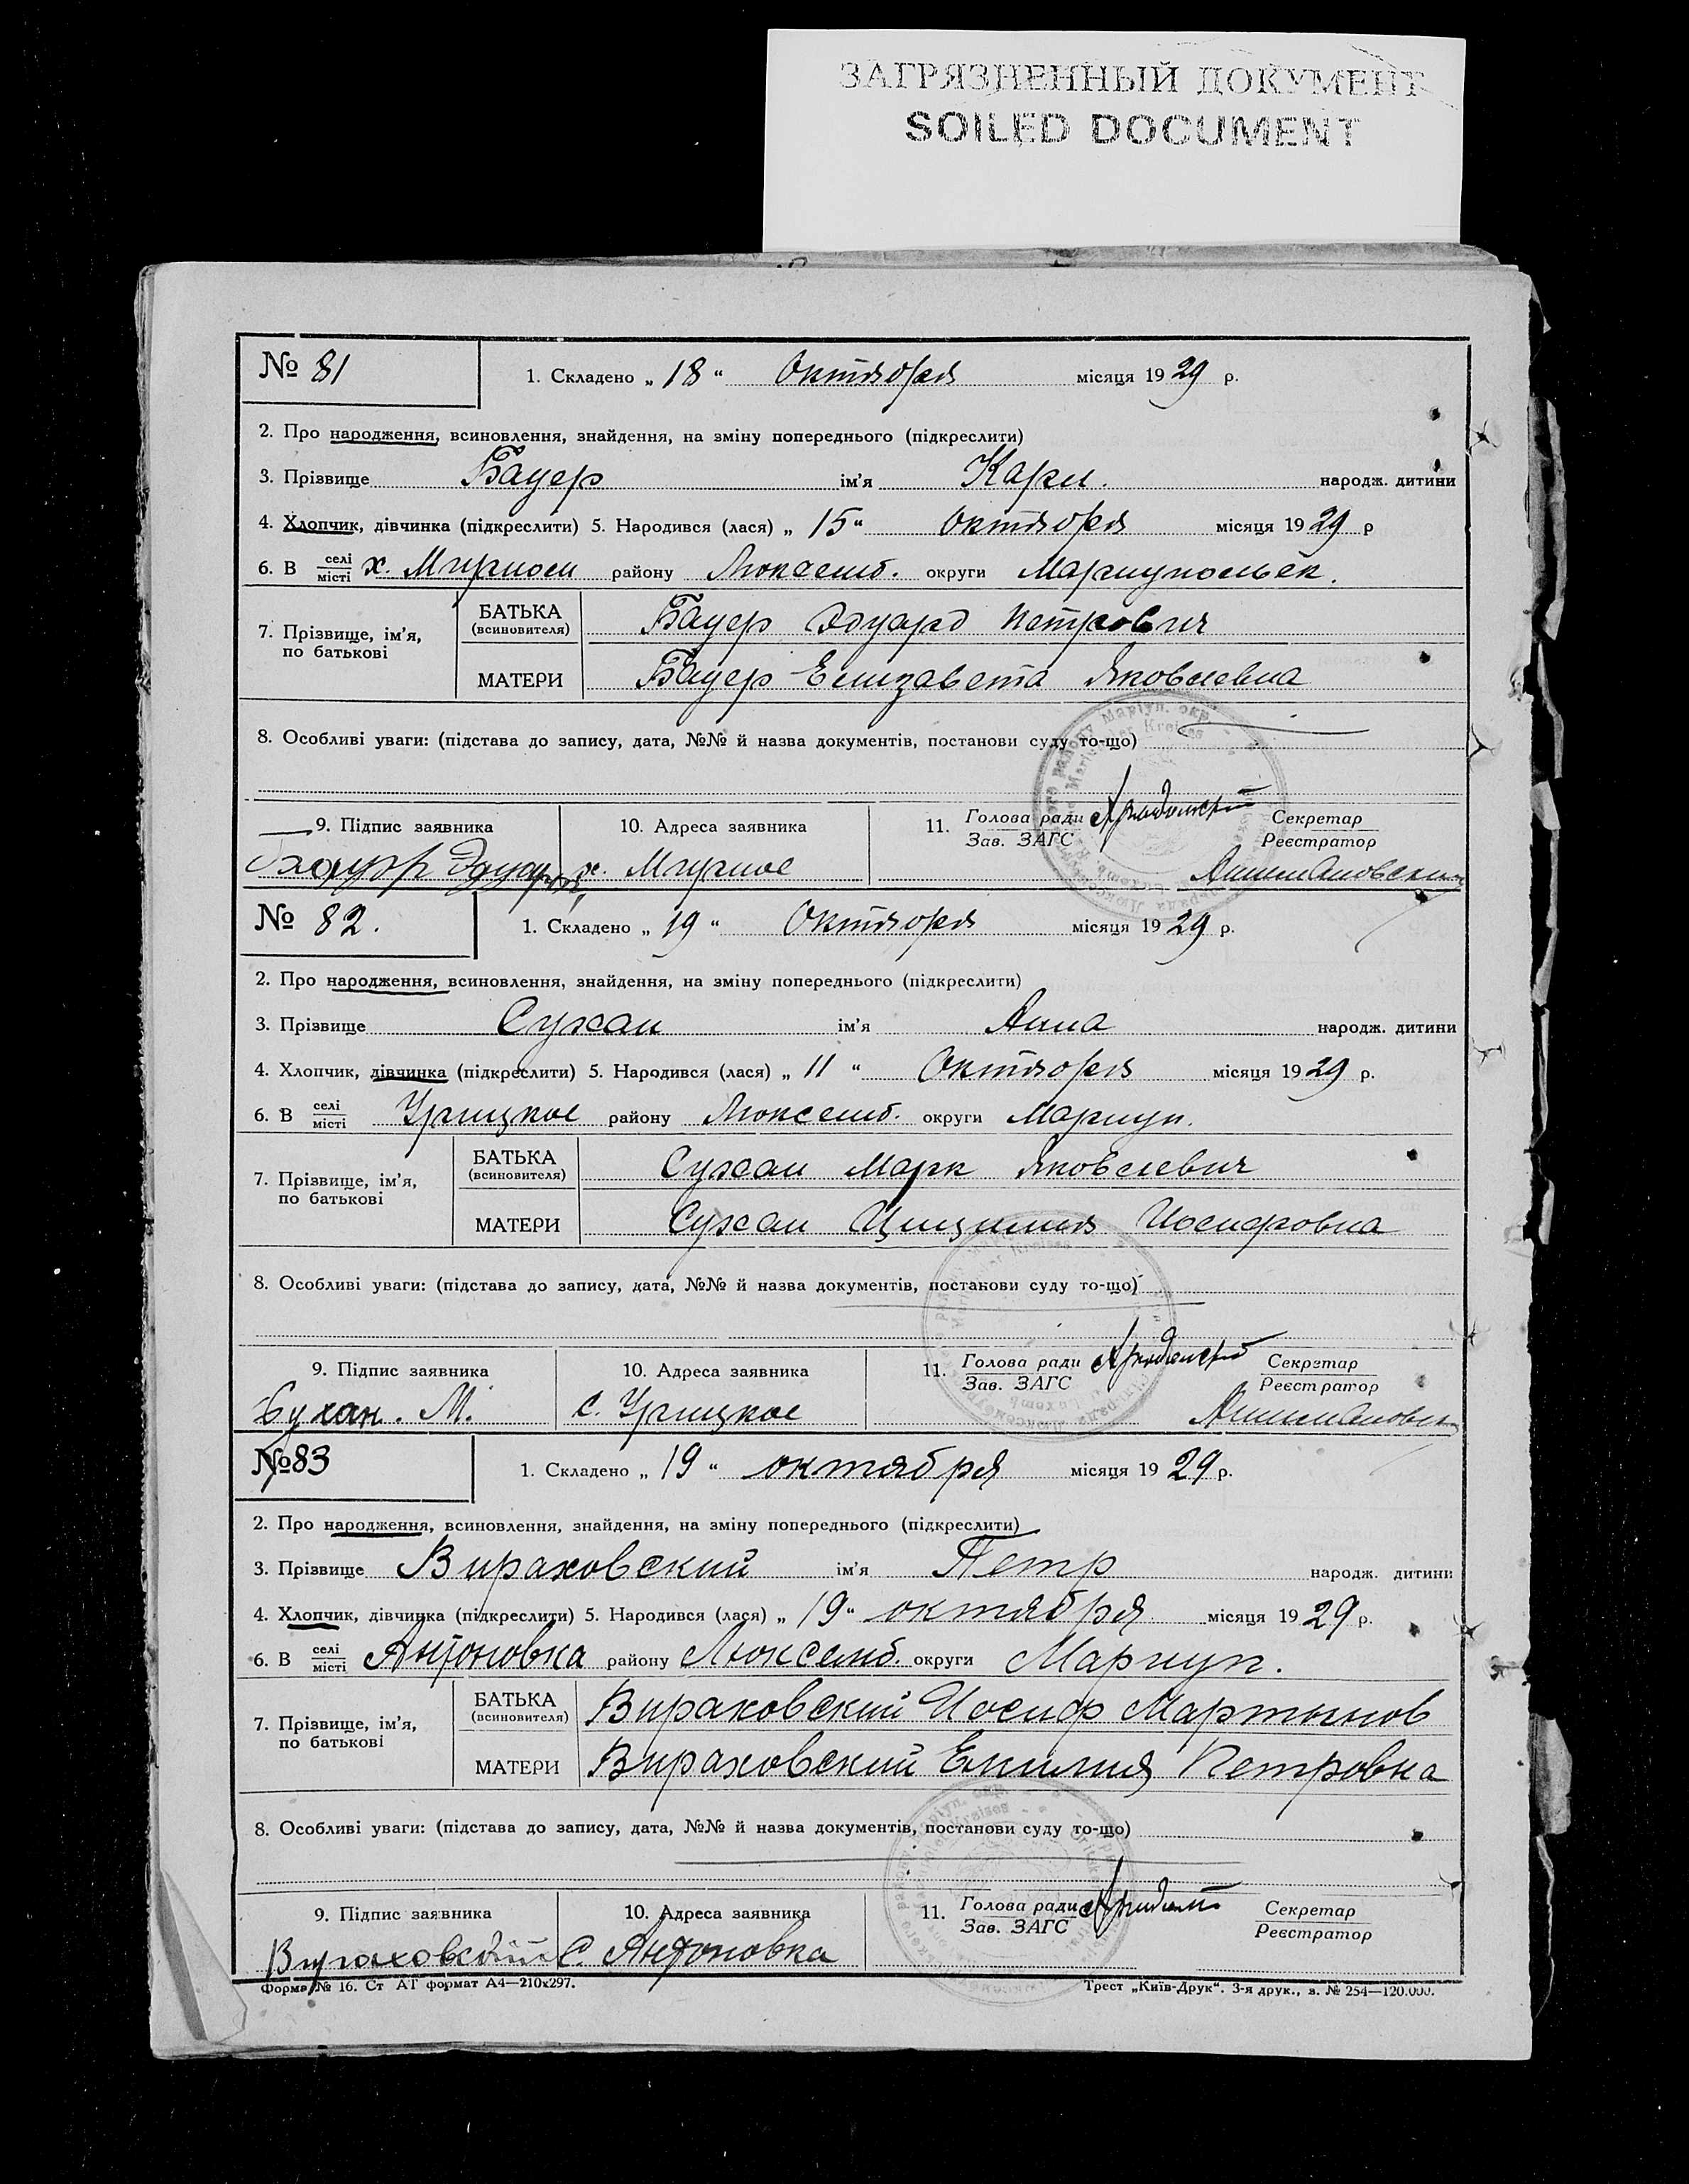 ЗАГРЯЗНЕННЫЙ ДОКУМЕНТ
SOILED DOCUMENT
№ 81 1. Складено „ 18 “ Октября місяця 1929 р.
2. Про народження, всиновлення, знайдення, на зміну попереднього (підкреслити)
3. Прізвище Бауер ім'я Карл. народж. дитини
4. Хлопчик, дівчинка (підкреслити) 5. Народився (лася) „ 15 “ Октября місяця 1929 р
6. В селі місті х. Мирном району Люксемб. округи Мариупольск.
7. Прізвище, ім'я, по батькові
БАТЬКА (всиновителя) Бауер Эдуард Петрович
МАТЕРИ Бауер Елизавета Яковлевна
8. Особливі уваги: (підстава до запису, дата, №№ й назва документів, постанови суду то-що)
9. Підпис заявника 10. Адреса заявника 11. Голова ради Зав. ЗАГС Секретар Реєстратор
Бауэр Эдуард х. Мирное
№ 82. 1. Складено „ 19 “ Октября місяця 1929 р.
2. Про народження, всиновлення, знайдення, на зміну попереднього (підкреслити)
3. Прізвище Сухан ім'я Анна народж. дитини
4. Хлопчик, дівчинка (підкреслити) 5. Народився (лася) „ 11 “ Октября місяця 1929 р.
6. В селі місті Урицкое району Люксемб. округи Мариуп.
7. Прізвище, ім'я, по батькові
БАТЬКА (всиновителя) Сухан Марк Яковлевич
МАТЕРИ Сухан Цицилия Иосифовна
8. Особливі уваги: (підстава до запису, дата, №№ й назва документів, постанови суду то-що)
9. Підпис заявника 10. Адреса заявника 11. Голова ради Зав. ЗАГС Секретар Реєстратор
Сухан. М. С. Урицкое
№ 83 1. Складено „ 19 “ октября місяця 1929 р.
2. Про народження, всиновлення, знайдення, на зміну попереднього (підкреслити)
3. Прізвище Вираховский ім'я Петр народж. дитини
4. Хлопчик, дівчинка (підкреслити) 5. Народився (лася) „ 19 “ октября місяця 1929 р.
6. В селі місті Антоновка району Люксемб. округи Мариуп.
7. Прізвище, ім'я, по батькові
БАТЬКА (всиновителя) Вираховский Иосиф Мартынов
МАТЕРИ Вираховский Емилия Петровна
8. Особливі уваги: (підстава до запису, дата, №№ й назва документів, постанови суду то-що)
9. Підпис заявника 10. Адреса заявника 11. Голова ради Зав. ЗАГС Секретар Реєстратор
Вираховский С. Антоновка
Форма № 16. Ст АГ формат А4—210х297. Трест „Київ-Друк“. 3-я друк., з. № 254—120.000.